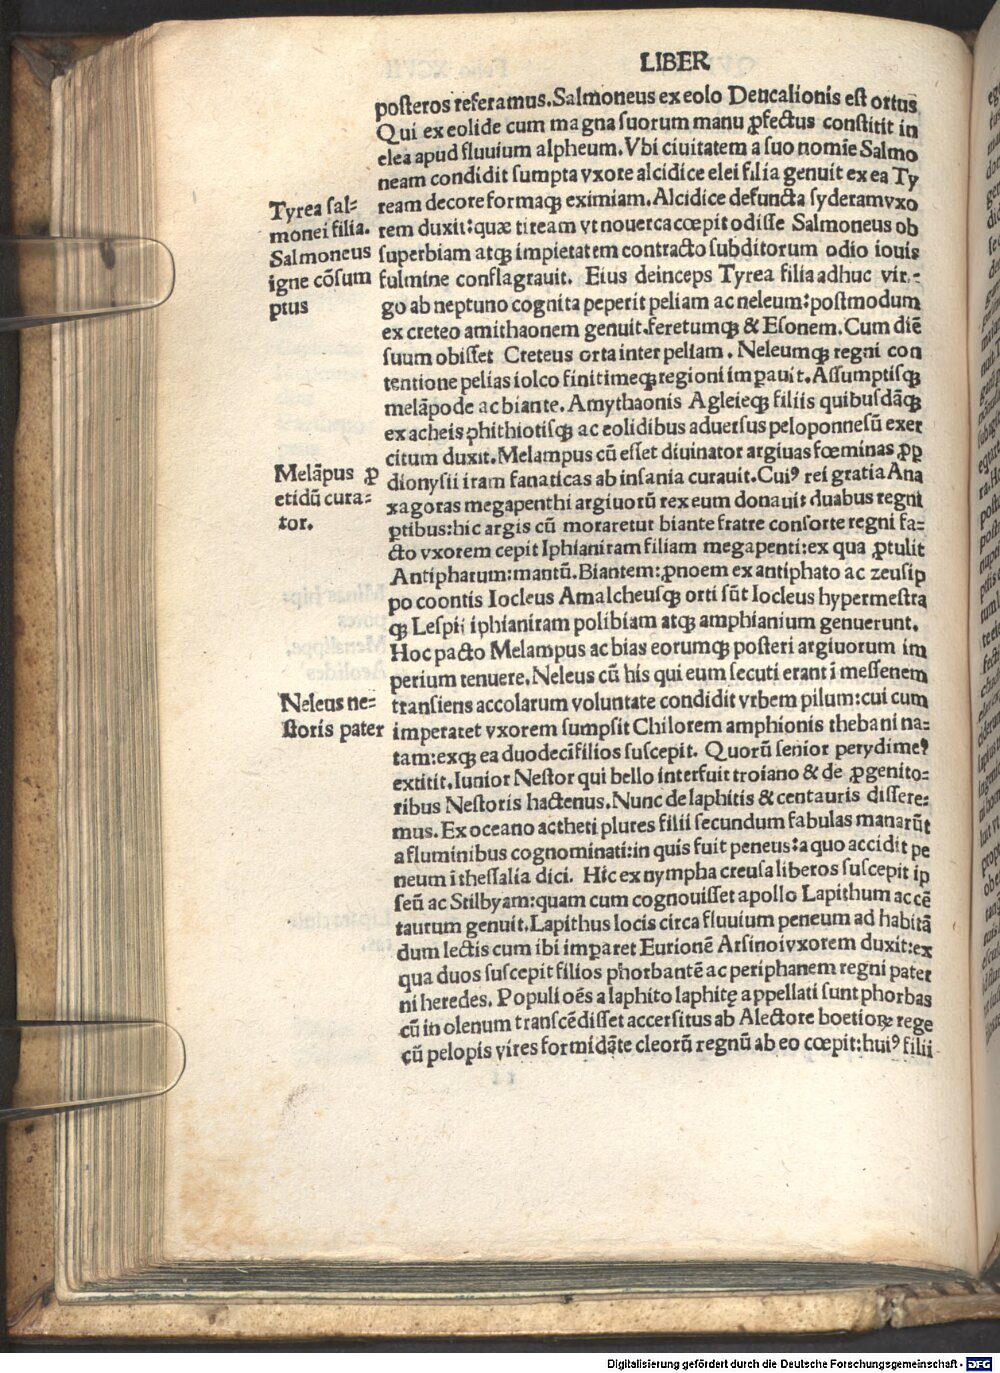 LIBER
posteros referamus.Salmoneus ex eolo Deucalionis est ortus
Qui ex eolide cum magna suorum manu ꝓfectus constitit in
elea apud fluuium alpheum.Vbi ciuitatem a suo nomīe Salmo
neam condidit sumpta vxore alcidice elei filia genuit ex ea Ty
ream decore formaqꝫ eximiam.Alcidice defuncta syderam vxo
rem duxit:quæ tiream vt nouerca cœpit odisse Salmoneus ob
superbiam atqꝫ impietatem contracto subditorum odio iouis
fulmine conflagrauit. Eius deinceps Tyrea filia adhuc vir⸗
go ab neptuno cognita peperit peliam ac neleum:postmodum
ex creteo amithaonem genuit.feretumqꝫ & Esonem.Cum diē
suum obisset Creteus orta inter peliam. Neleumqꝫ regni con
tentione pelias iolco finitimeqꝫ regioni imꝑauit.Assumptisqꝫ
melāpode ac biante.Amythaonis Agleieqꝫ filiis quibusdāqꝫ
ex acheis phithiotisqꝫ ac eolidibus aduersus peloponnesū exer
citum duxit.Melampus cū esset diuinator argiuas fœminas ꝓp
dionysii iram fanaticas ab insania curauit.Cuiꝰ rei gratia Ana
xagoras megapenthi argiuorū rex eum donauit duabus regni
ꝑtibus:hic argis cū moraretur biante fratre consorte regni fa⸗
cto vxorem cepit Iphianiram filiam megapenti:ex qua ꝓtulit
Antiphatum:mantū.Biantem:ꝓnoem ex antiphato ac zeusip
po coontis Iocleus Amalcheusqꝫ orti sūt Iocleus hypermestra
qꝫ Lespti iphianiram polibiam atqꝫ amphianium genuerunt.
Hoc pacto Melampus ac bias eorumqꝫ posteri argiuorum im
perium tenuere.Neleus cū his qui eum secuti erant ī messenem
transiens accolarum voluntate condidit vrbem pilum:cui cum
imperatet vxorem sumpsit Chilorem amphionis thebani na⸗
tam:exqꝫ ea duodecī filios suscepit. Quorū senior perydimeꝰ
extitit.Iunior Nestor qui bello interfuit troiano & de ꝓgenito⸗
ribus Nestoris hactenus.Nunc de laphitis & centauris dissere⸗
mus.Ex oceano ac theti plures filii secundum fabulas manarūt
a fluminibus cognominati:in quis fuit peneus:a quo accidit pe
neum ī thessalia dici. Hic ex nympha creusa liberos suscepit ip
seū ac Stilbyam:quam cum cognouisset apollo Lapithum ac cē
taurum genuit.Lapithus locis circa fluuium peneum ad habitā
dum lectis cum ibi imꝑaret Eurionē Arsinoi vxorem duxit:ex
qua duos suscepit filios phorbantē ac periphanem regni pater
ni heredes. Populi oēs a laphito laphitę appellati sunt phorbas
cū in olenum transcēdisset accersitus ab Alectore boetioꝝ rege
cū pelopis vires formidāte cleorū regnū ab eo cœpit:huiꝰ filii
Tyrea sal⸗
monei filia.
Salmoneus
igne cōsum
ptus
Melāpus ꝓ
etidū cura⸗
tor.
Neleus ne⸗
storis pater
Digitalisierung gefördert durch die Deutsche Forschungsgemeinschaft - DFG